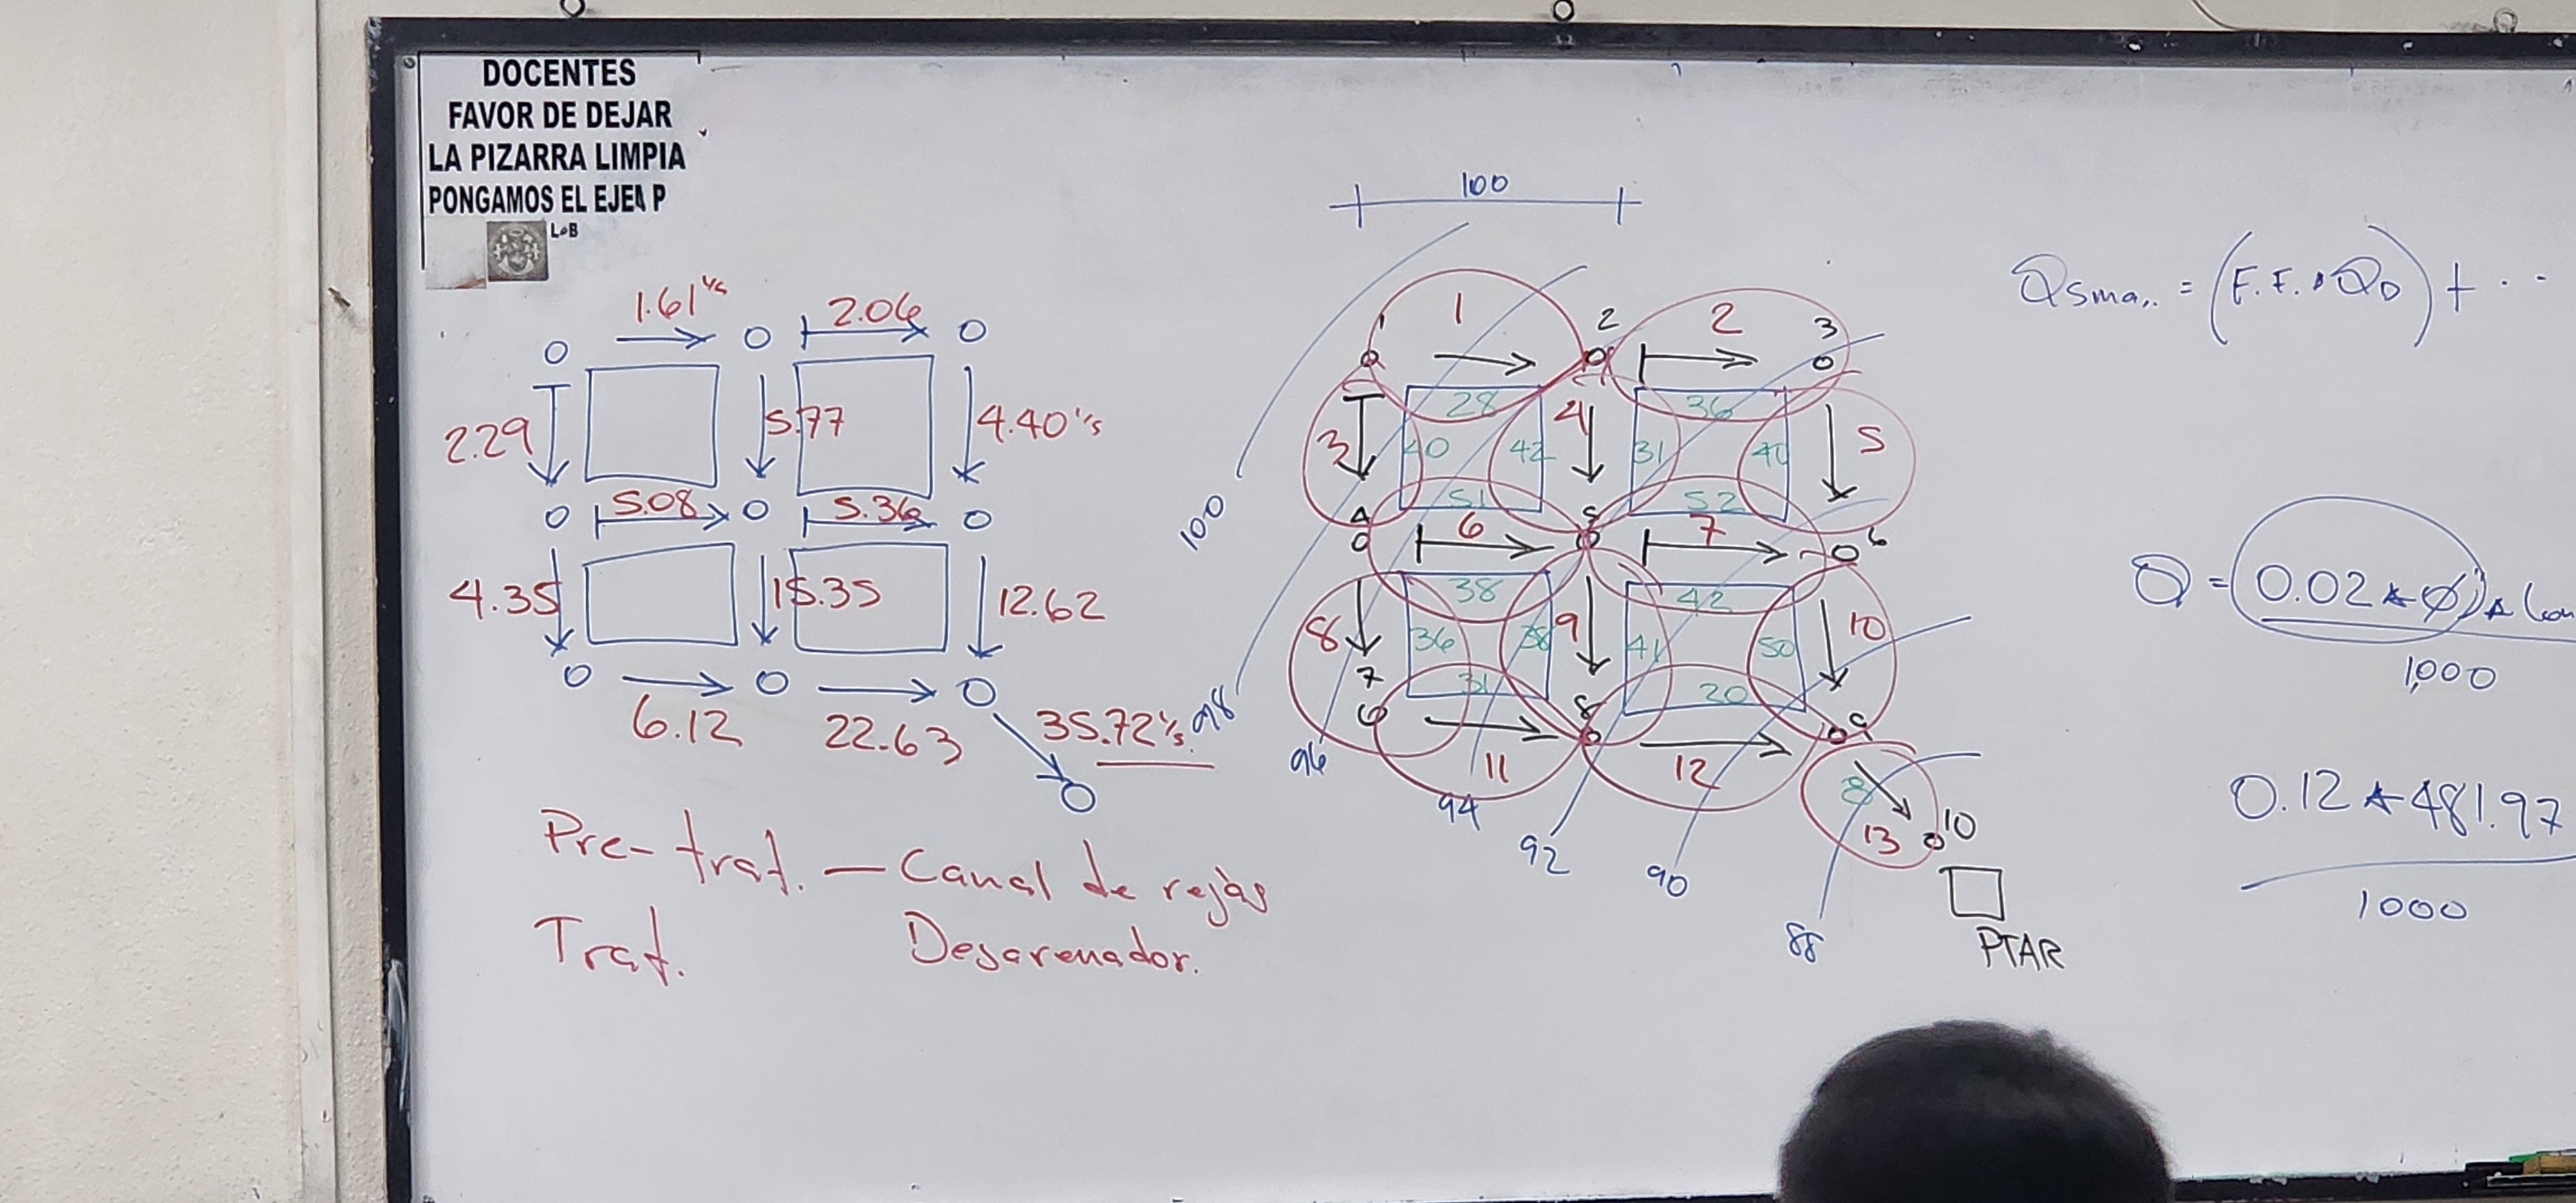 DOCENTES
FAVOR DE DEJAR
LA PIZARRA LIMPIA
PONGAMOS EL EJEM P
1.61 2.06
2.29 5.77 4.40 l/s
5.08 5.36
4.35 15.35 12.62
6.12 22.63 35.72 l/s
Pre-trat. — Canal de rejas
Trat. Desarenador.
100
1 2
1 2 3
28 36
3 40 42 4 31 40 5
51 52
4 6 5 7 6
38 42
8 36 38 9 41 50 10
7 31 8 20 9
11 12
8
13 10
PTAR
100
98
96
94
92
90
88
Qsma.. = (F.F. * QD) + ...
Q = (0.02 * Ø) *
1000
0.12 * 481.97
1000